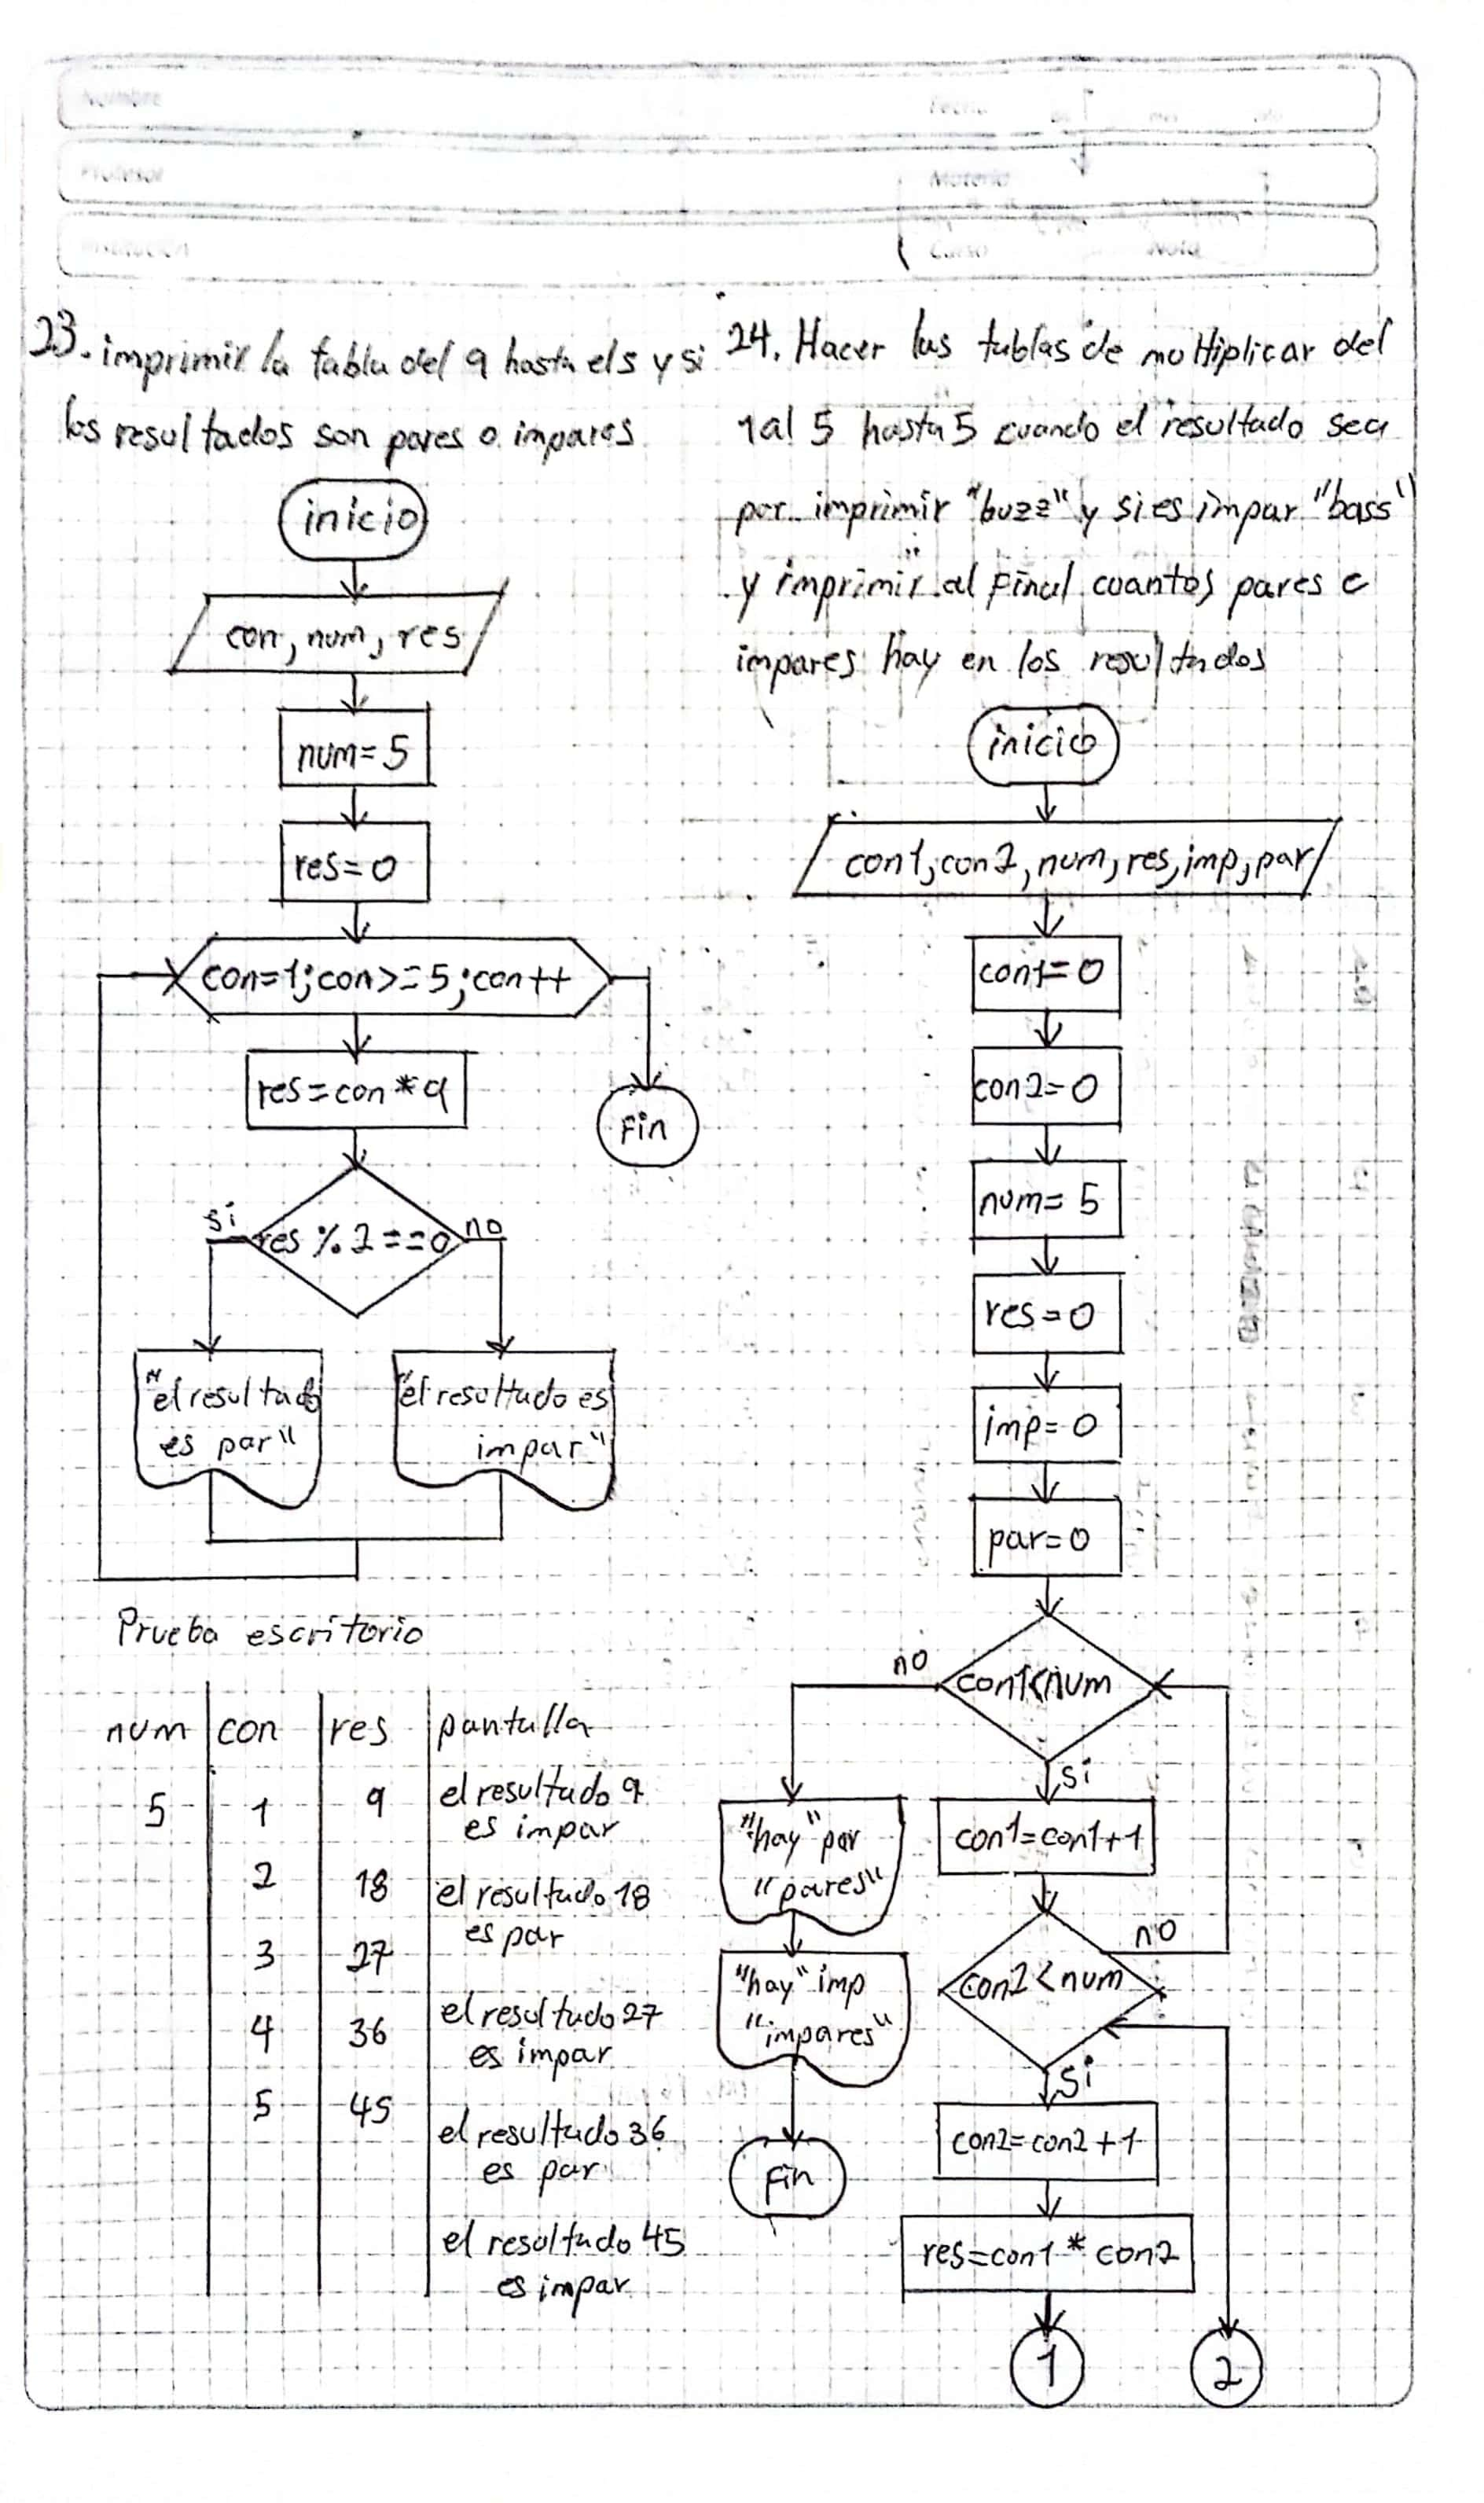 Nombre
Fecha
Profesor
Materia
Institución
Curso
Nota
23. imprimir la tabla del 9 hasta el 5 y si
los resultados son pares o impares
inicio
con, num, res
num=5
res=0
con=1;con>=5;con++
res=con*9
fin
si
res % 2 ==0
no
"el resultado
es par"
"el resultado es
impar"
Prueba escritorio
num con res pantalla
5 1 9 el resultado 9
es impar
2 18 el resultado 18
es par
3 27
el resultado 27
es impar
4 36
5 45
el resultado 36
es par
el resultado 45
es impar
24. Hacer las tablas de multiplicar del
1 al 5 hasta 5 cuando el resultado sea
par imprimir "buzz" y si es impar "bass"
y imprimir al final cuantos pares e
impares hay en los resultados
inicio
con1,con2,num,res,imp,par
con1=0
con2=0
num=5
res=0
imp=0
par=0
no
con1<num
si
"hay" par
"pares"
con1=con1+1
no
"hay" imp
"impares"
con2<num
si
fin
con2=con2+1
res=con1*con2
1
2